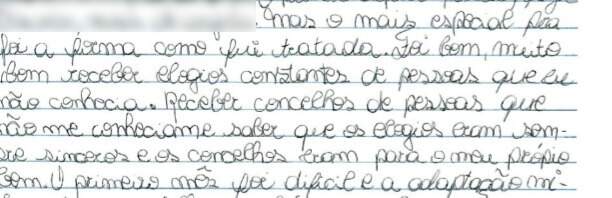 . mas o mais especial pra
foi a forma como fui tratada. Foi bom, muito
bom receber elogios constantes de pessoas que eu
não conhecia. Receber concelhos de pessoas que
não me conheciam e saber que os elogios eram som-
re sinceros e os concelhos eram para o meu própio
bom. O primeiro mês foi dificil e a adaptação mi-